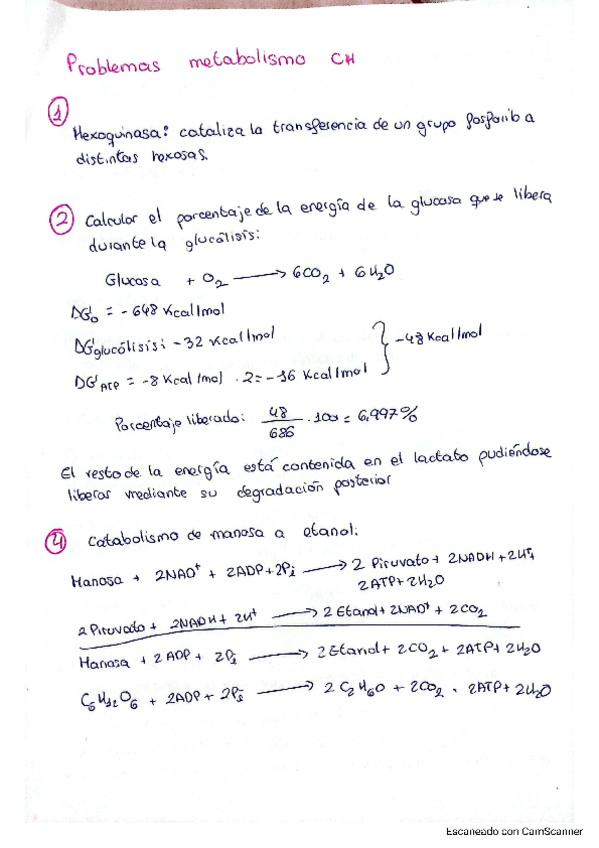 Problemas metabolismo CH
①
Hexoquinasa: cataliza la transferencia de un grupo fosforilo a
distintas hexosas.
② Calcular el porcentaje de la energía de la glucosa que se libera
durante la glucólisis:
Glucosa + O₂ ⟶ 6CO₂ + 6H₂O
ΔG'₀ = - 648 Kcal/mol
ΔG'glucólisis: -32 Kcal/mol
ΔG'ATP = -8 Kcal/mol · 2 = -16 Kcal/mol } -48 Kcal/mol
Porcentaje liberado: 48/686 · 100 = 6,997%
El resto de la energía está contenida en el lactato pudiéndose
liberar mediante su degradación posterior
④ Catabolismo de manosa a etanol:
Manosa + 2NAD⁺ + 2ADP + 2Pi ⟶ 2 Piruvato + 2NADH + 2H⁺
2ATP + 2H₂O
2 Piruvato + 2NADH + 2H⁺ ⟶ 2 Etanol + 2NAD⁺ + 2CO₂
Manosa + 2 ADP + 2Pi ⟶ 2 Etanol + 2CO₂ + 2ATP + 2H₂O
C₆H₁₂O₆ + 2ADP + 2Pi ⟶ 2 C₂H₆O + 2CO₂ · 2ATP + 2H₂O
Escaneado con CamScanner